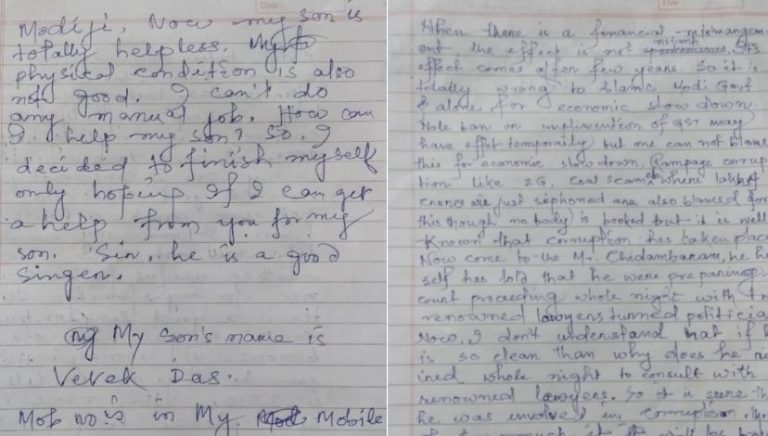 Modiji, Now my son is
totally helpless. My
physical condition is also
not good. I can't do
any manual job. How can
I help my son? So, I
decided to finish myself
only hoping if I can get
a help from you for my
son. Sir, he is a good
Singer.
My Son's name is
Vevek Das.
Mob no. is in My Mobile
When there is a financial mismanagem-
ent the effect is not instant. Its
effect comes after few years. So it is
totally wrong to blame Modi Govt
alone for economic slow down.
Note ban or of GST may
have effet temporarily but one can not blame
this for economic slow down. Rampage corrup
tion like 2G, coal scam where
crores are just siphoned are also blamed for
this though no body is booked but it is well
known that corruption has taken place
Now come to the Mr. Chidambaram, he h
self has told that he were preparing
court proceeding whole night with
renowned lawyers turned politicia
Now, I don't understand that if h
is so clean than why does he
whole night to consult with
renowned lawyers. So it is sure th
he was involved in corruption
it will be